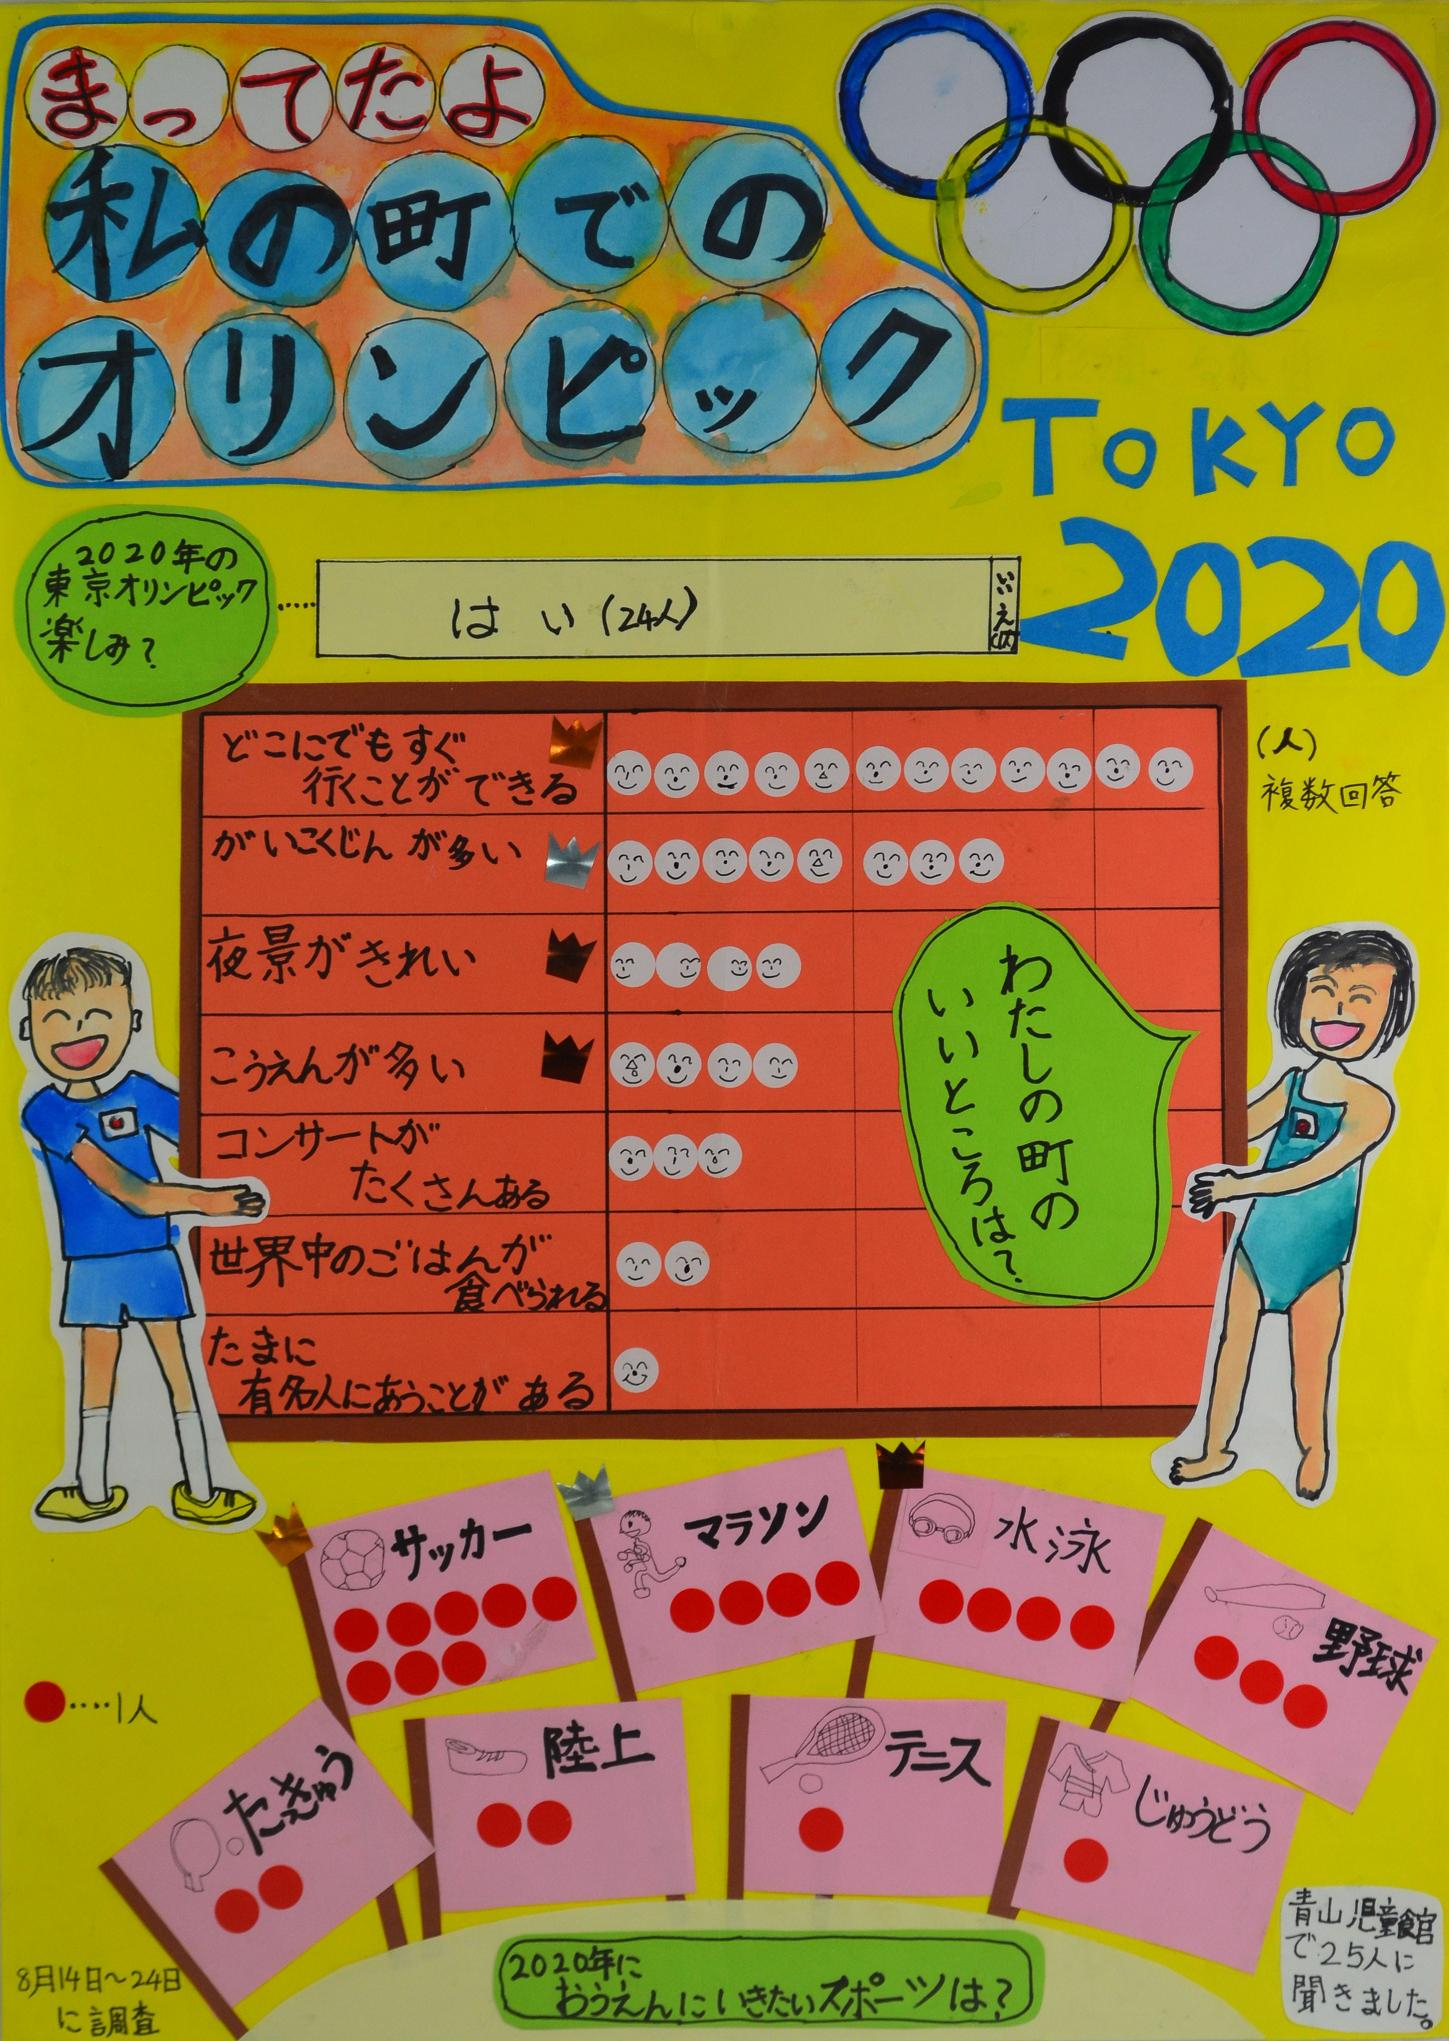 まってたよ
私の町での
オリンピック
TOKYO
2020
2020年の
東京オリンピック
楽しみ?
はい(24人)
いいえ(1人)
(人)
複数回答
どこにでもすぐ
行くことができる
がいこくじんが多い
夜景がきれい
こうえんが多い
コンサートが
たくさんある
世界中のごはんが
食べられる
たまに
有名人にあうことがある
わたしの町の
いいところは?
サッカー
マラソン
水泳
野球
・・・・1人
たっきゅう
陸上
テニス
じゅうどう
2020年に
おうえんにいきたいスポーツは?
8月14日~24日
に調査
青山児童館
で25人に
聞きました。